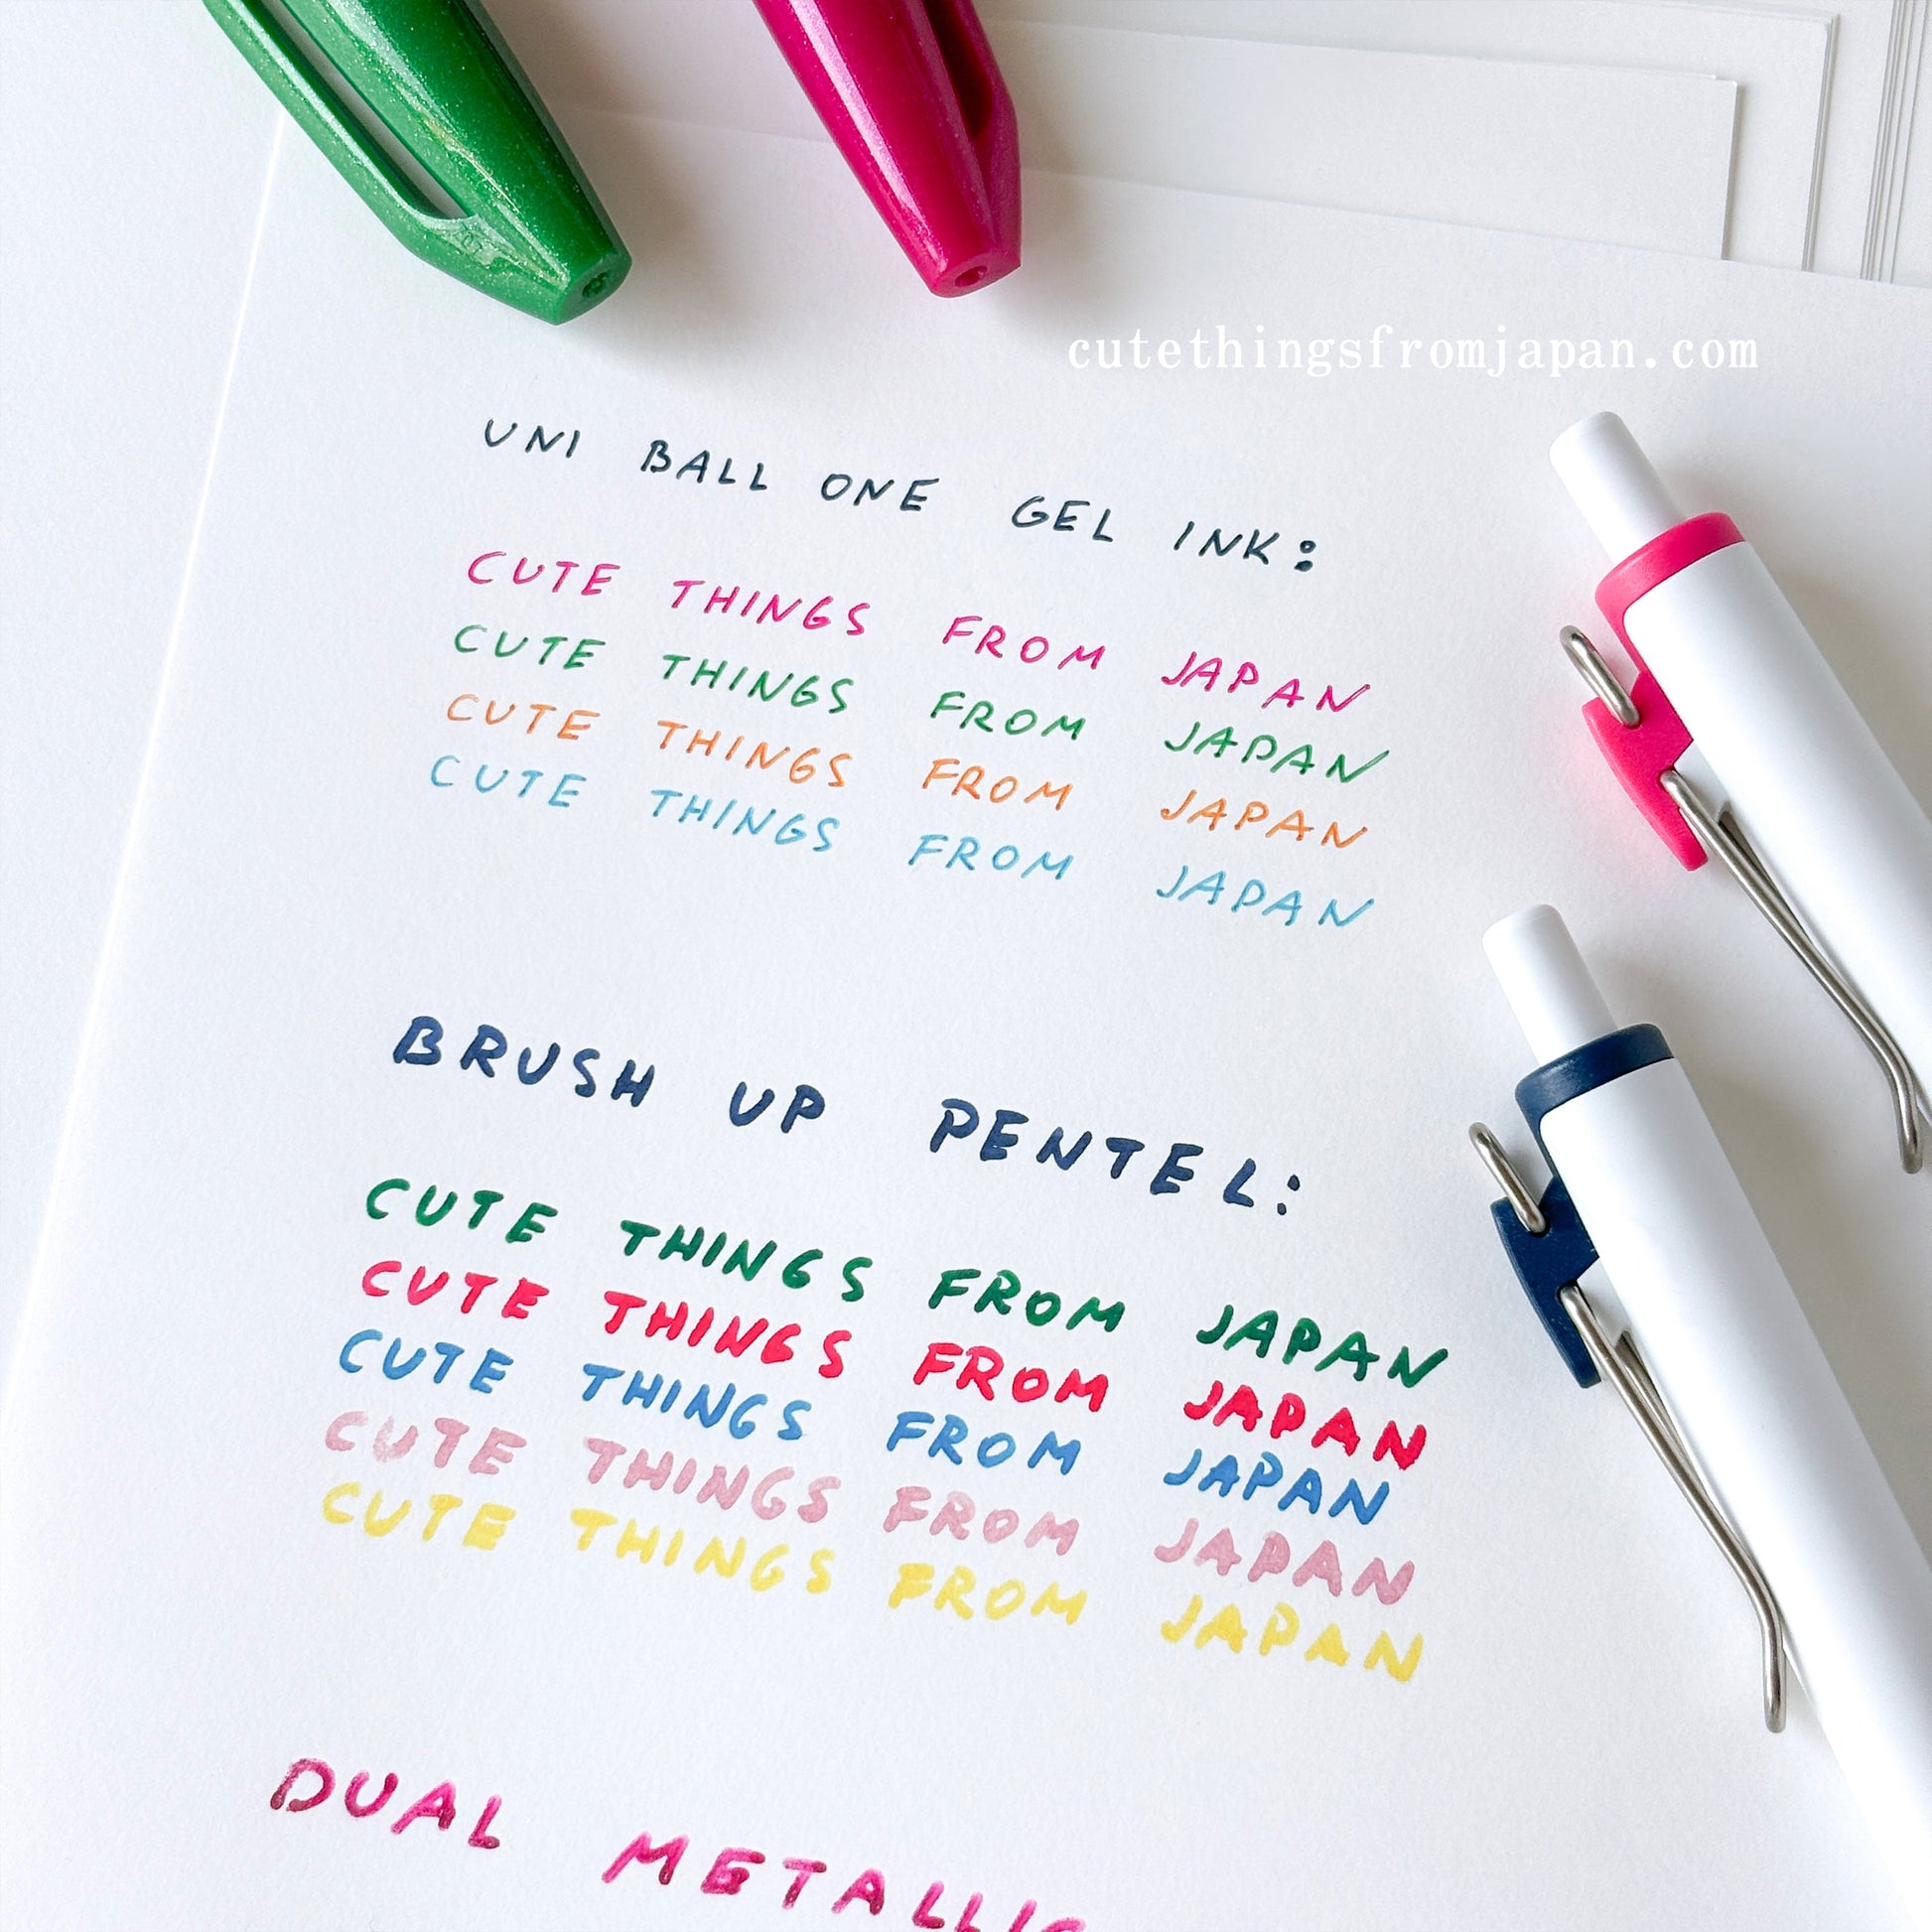 cutethingsfromjapan.com
UNI BALL ONE GEL INK:
CUTE THINGS FROM JAPAN
CUTE THINGS FROM JAPAN
CUTE THINGS FROM JAPAN
CUTE THINGS FROM JAPAN
BRUSH UP PENTEL:
CUTE THINGS FROM JAPAN
CUTE THINGS FROM JAPAN
CUTE THINGS FROM JAPAN
CUTE THINGS FROM JAPAN
CUTE THINGS FROM JAPAN
DUAL METALLIC